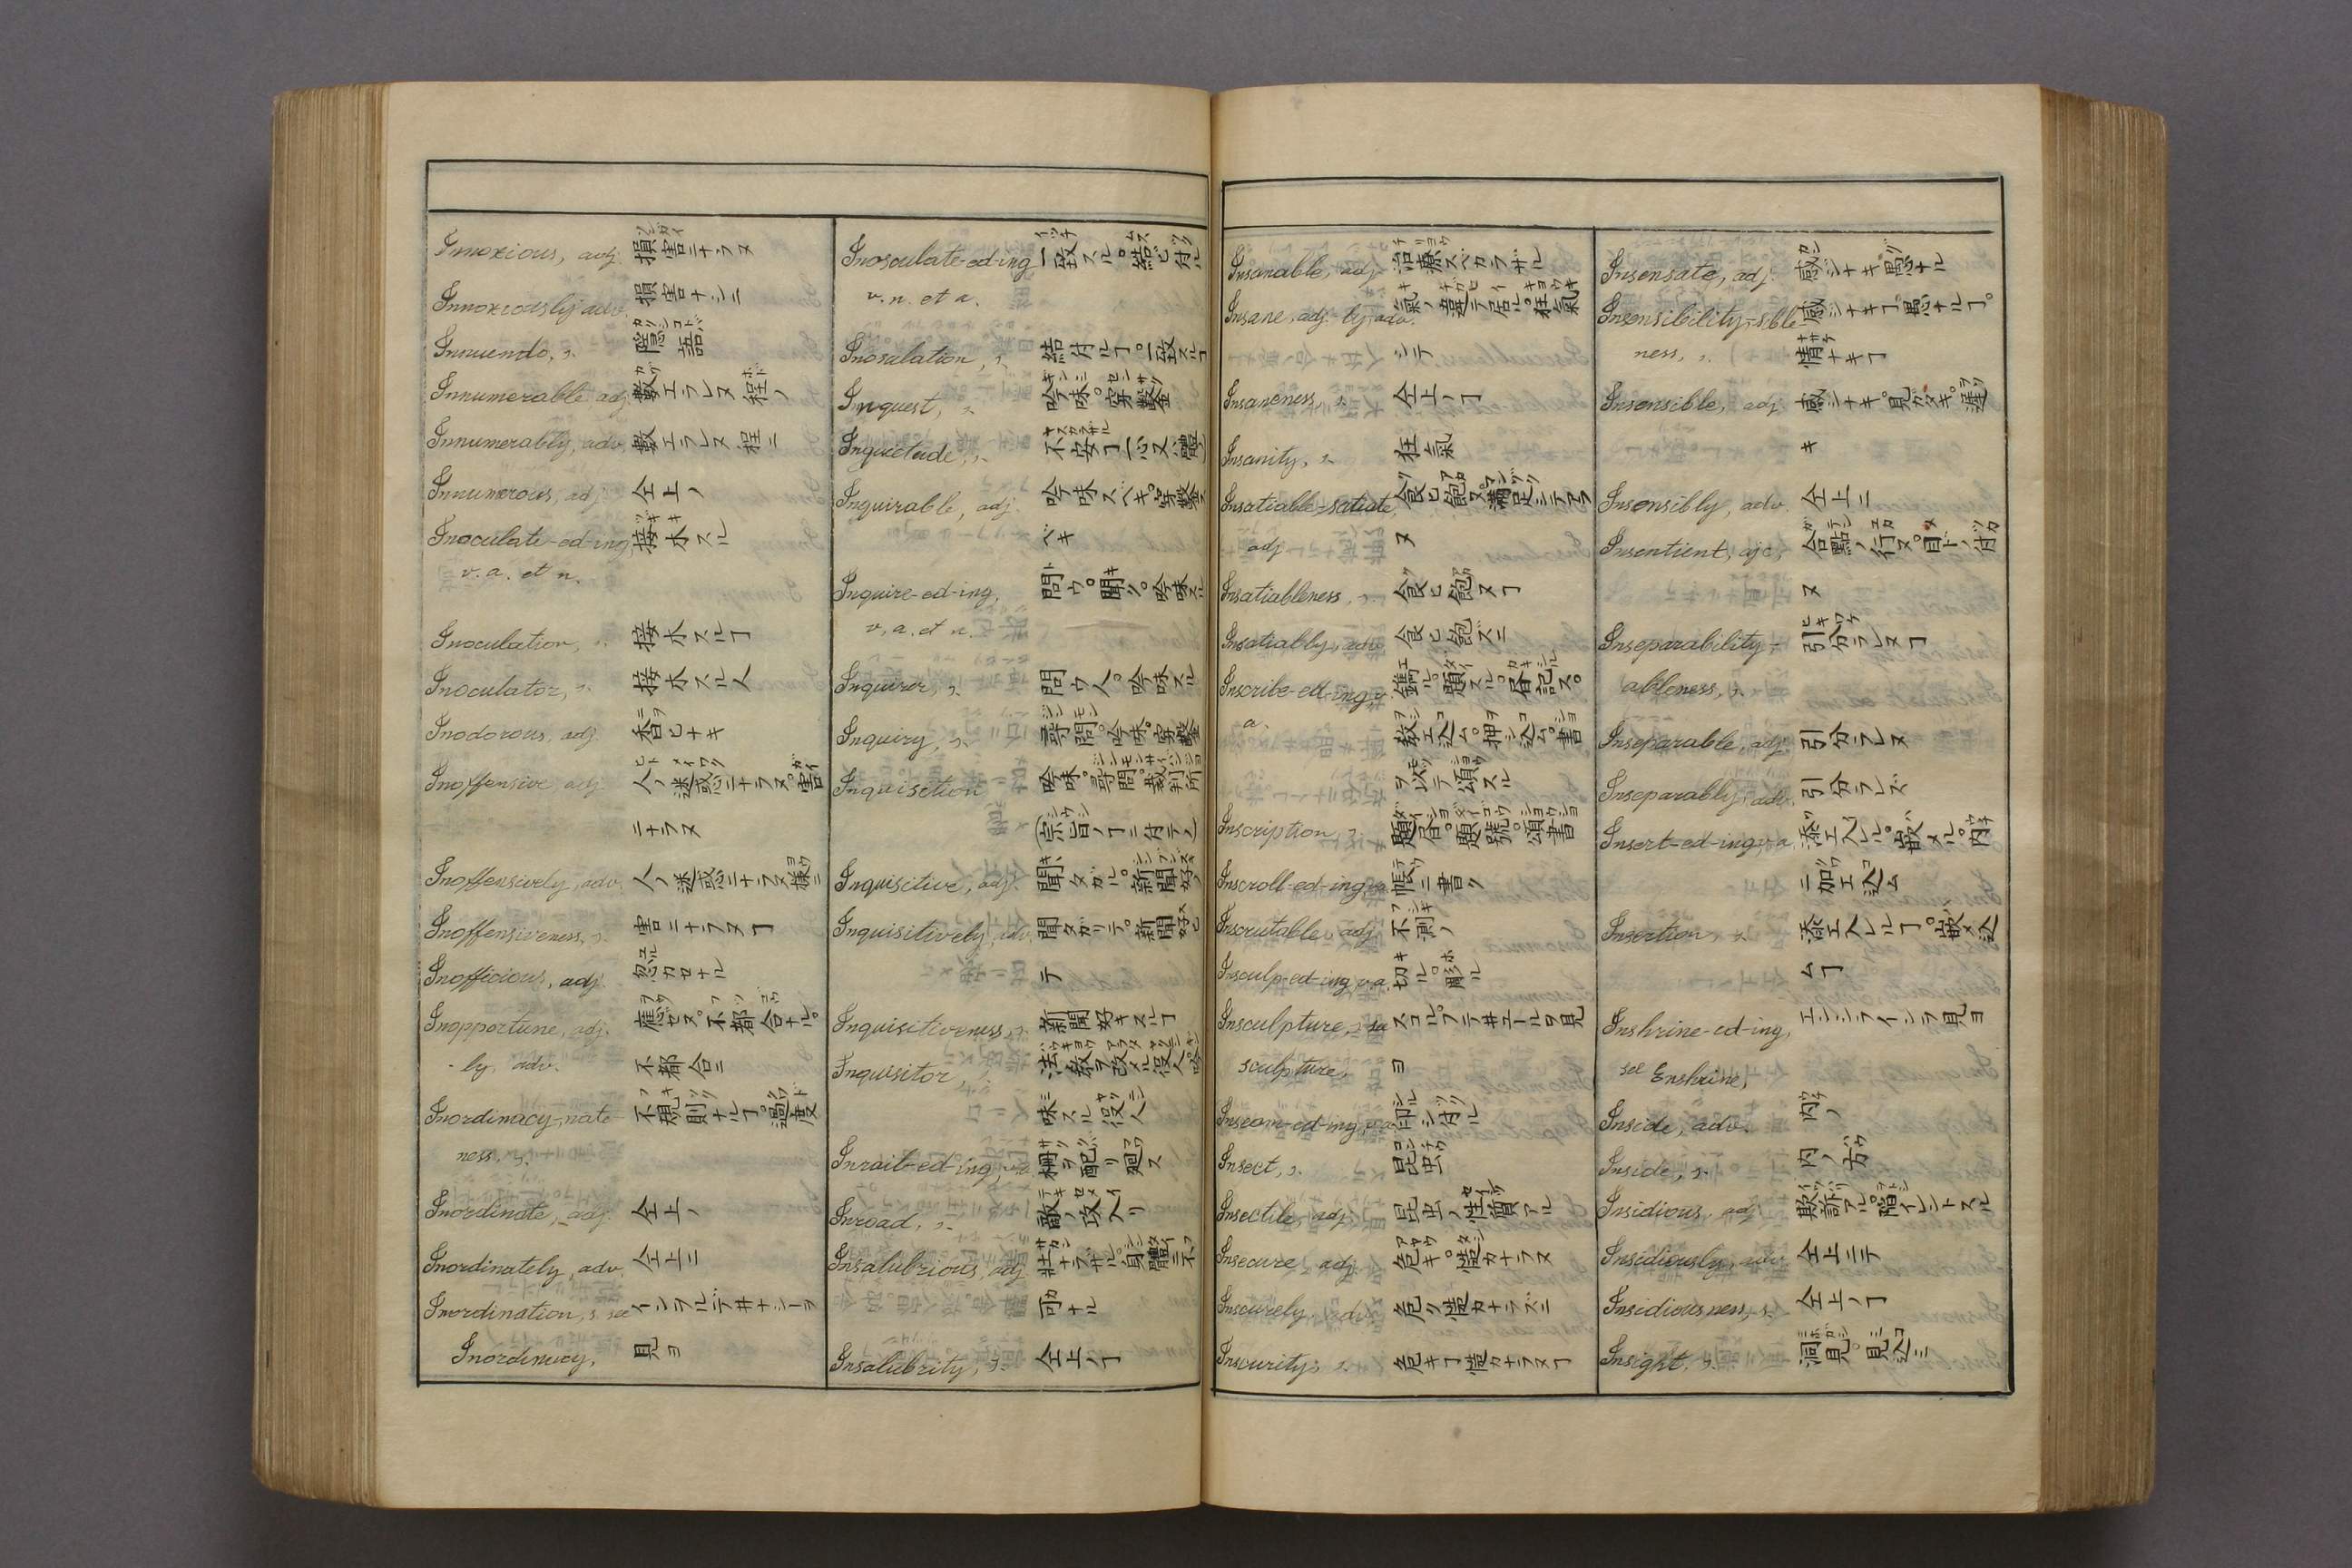 Innoxious, adj. 損害ニナラヌ
Innoxiously adv. 損害ナシニ
Innuendo, s. 隠語
Innumerable adj. 數エラレヌ程ノ
Innumerably, adv. 數エラレヌ程ニ
Innumerous, adj. 仝上ノ
Inoculate-ed-ing 接木スル
v. a. et n.
Inoculation, s. 接木スルヿ
Inoculator, s. 接木スル人
Inodorous, adj. 香ヒナキ
Inoffensive, adj. 人ノ迷惑ニナラヌ。害
ニナラヌ
Inoffensively, adv. 人ノ迷惑ニナラヌ様ニ
Inoffensiveness, s. 害ニナラヌヿ
Inofficious, adj. 忽カセナル
Inopportune, adj. 應ゼヌ。不都合ナル。
-ly, adv. 不都合ニ
Inordinacy,-nate- 不規則ナルヿ。過度
ness, s.
Inordinate, adj. 仝上ノ
Inordinately, adv. 仝上ニ
Inordination, s. see インヲルデ井ナシーヲ
Inordinacy, 見ヨ
Inosculate-ed-ing 一致スル。結ビ付ル
v. n. et a.
Inosculation, s. 結付ルヿ。一致スルヿ
Inquest, s. 吟味。穿鑿
Inquietude, s. 不安ヿ 心又體
Inquirable, adj. 吟味スベキ。穿鑿
ベキ
Inquire-ed-ing, 問ウ。聞ク。吟味スル
v. a. et n.
Inquirer, s. 問ウ人。吟味スル
Inquiry, s. 尋問。吟味。穿鑿
Inquisition 吟味。尋問。裁判所
(宗旨ノヿニ付テノ
Inquisitive, adj. 聞タガル。新聞好ノ
Inquisitively, adv. 聞タガリテ。新聞好ヒ
テ
Inquisitiveness, s. 新聞好キスルヿ
Inquisitor, s. 法教ヲ改メル役人。吟
味スル役人
Inrail-ed-ing, v.a. 柵ヲ配リ廻ス
Inroad, s. 敵ノ攻入リ
Insalubrious, adj. 壮ナラザル。身體ニ不
可ナル
Insalubrity, s. 仝上ノヿ
Insanable, adj. 治療スベカラザル
Insane, adj. ly, adv. 氣ノ違テ居ル。狂氣
シテ
Insaneness, s. 仝上ノヿ
Insanity, s. 狂氣
Insatiable-satiate, 食ヒ飽ヌ。満足シテアラ
adj. ヌ
Insatiableness, s. 食ヒ飽ヌヿ
Insatiably, adv. 食ヒ飽ズニ
Inscribe-ed-ing v. 鐫ル。題スル。昏記ス。
a. 教エ込ム。押シ込ム。書
ヲ以テ頌スル
Inscription, s. 題昏。題號。頌書
Inscroll-ed-ing, v.a. 帳ニ書ク
Inscrutable, adj. 不測ノ
Insculp-ed-ing v.a. 切ル。彫ル
Insculpture, s. see スコルプテ井ユールヲ見
sculpture, ヨ
Inseam-ed-ing, v.a. 印シ付ル
Insect, s. 昆虫
Insectile, adj. 昆虫ノ性質アル
Insecure, adj. 危キ。慥カナラヌ
Insecurely, adv. 危ク慥カナラズニ
Insecurity, s. 危キヿ慥カナラヌヿ
Insensate, adj. 感ジナキ愚ナル
Insensibility,-sible- 感ジナキヿ愚ナルヿ。
ness, s. 情ナキヿ
Insensible, adj. 感ジナキ。見ガタキ。遅
キ
Insensibly, adv. 仝上ニ
Insentient, ajc, 合點ノ行ヌ。目ドノ付カ
ヌ
Inseparability,- 引分ラレヌヿ
ableness, s.
Inseparable, adj. 引分ラレヌ
Inseparably, adv. 引分ラレズ
Insert-ed-ing, v.a. 添エ入レル。嵌メル。内
ニ加エ込ム
Insertion, s. 添エ入レルヿ。嵌メ込
ムヿ
Inshrine-ed-ing, エンシラインヲ見ヨ
see Enshrine,
Inside, adv. 内ノ
Inside, s. 内ノ方
Insidious, adj. 欺詐アル。陥イレントスル
Insidiously, adv. 仝上ニテ
Insidiousness, s. 仝上ノヿ
Insight, s. 洞見。見込ミ